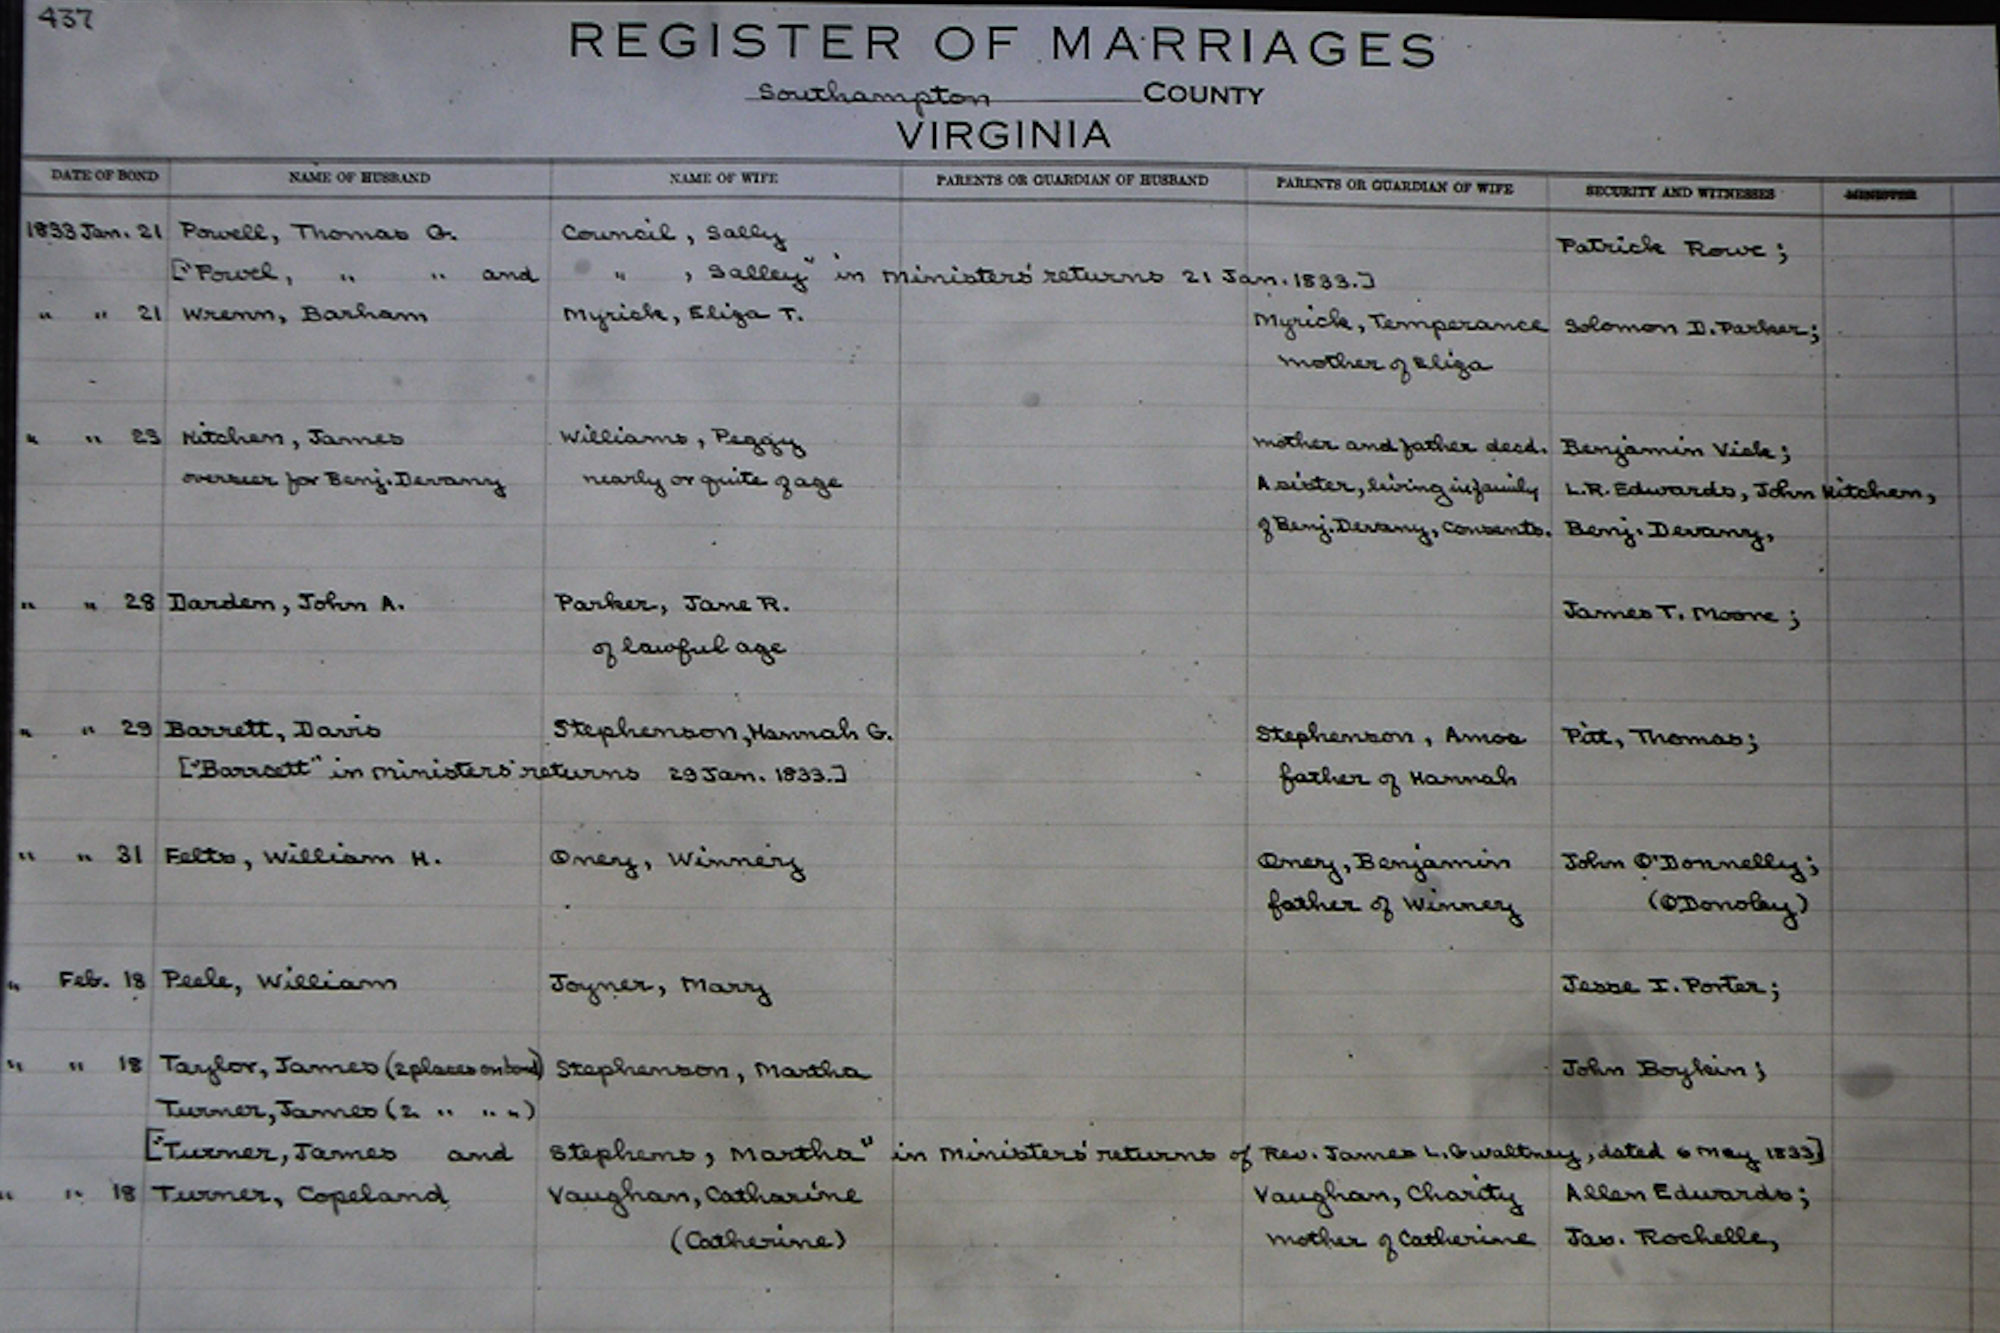 437
REGISTER OF MARRIAGES
Southampton COUNTY
VIRGINIA
DATE OF BOND NAME OF HUSBAND NAME OF WIFE PARENTS OR GUARDIAN OF HUSBAND PARENTS OR GUARDIAN OF WIFE SECURITY AND WITNESSES MINISTER
1833 Jan. 21 Powell, Thomas G. Council, Sally Patrick Rowe;
["Powel, " " and " , Salley" in Ministers' returns 21 Jan. 1833.]
" " 21 Wrenn, Barham Myrick, Eliza T. Myrick, Temperance Solomon D. Parker;
mother of Eliza
" " 23 Kitchen, James Williams, Peggy mother and father decd. Benjamin Vick;
overseer for Benj. Devany nearly or quite of age A sister, living in family L.R. Edwards, John Kitchen,
of Benj. Devany, consents. Benj. Devany,
" " 28 Darden, John A. Parker, Jane R. James T. Moore;
of lawful age
" " 29 Barrett, Davis Stephenson, Hannah G. Stephenson, Amos Pitt, Thomas;
["Barrsett" in Ministers' returns 29 Jan. 1833.] father of Hannah
" " 31 Felts, William H. Oney, Winney Oney, Benjamin John O'Donnelly;
father of Winney (ODonoley)
" Feb. 18 Peele, William Joyner, Mary Jesse I. Porter;
" " 18 Taylor, James (2 places on bond) Stephenson, Martha John Boykin;
Turner, James (2 " " ")
["Turner, James and Stephens, Martha" in Ministers' returns of Rev. James L. Gwaltney, dated 6 May 1833]
" " 18 Turner, Copeland Vaughan, Catharine Vaughan, Charity Allen Edwards;
(Catherine) mother of Catherine Jas. Rochelle,